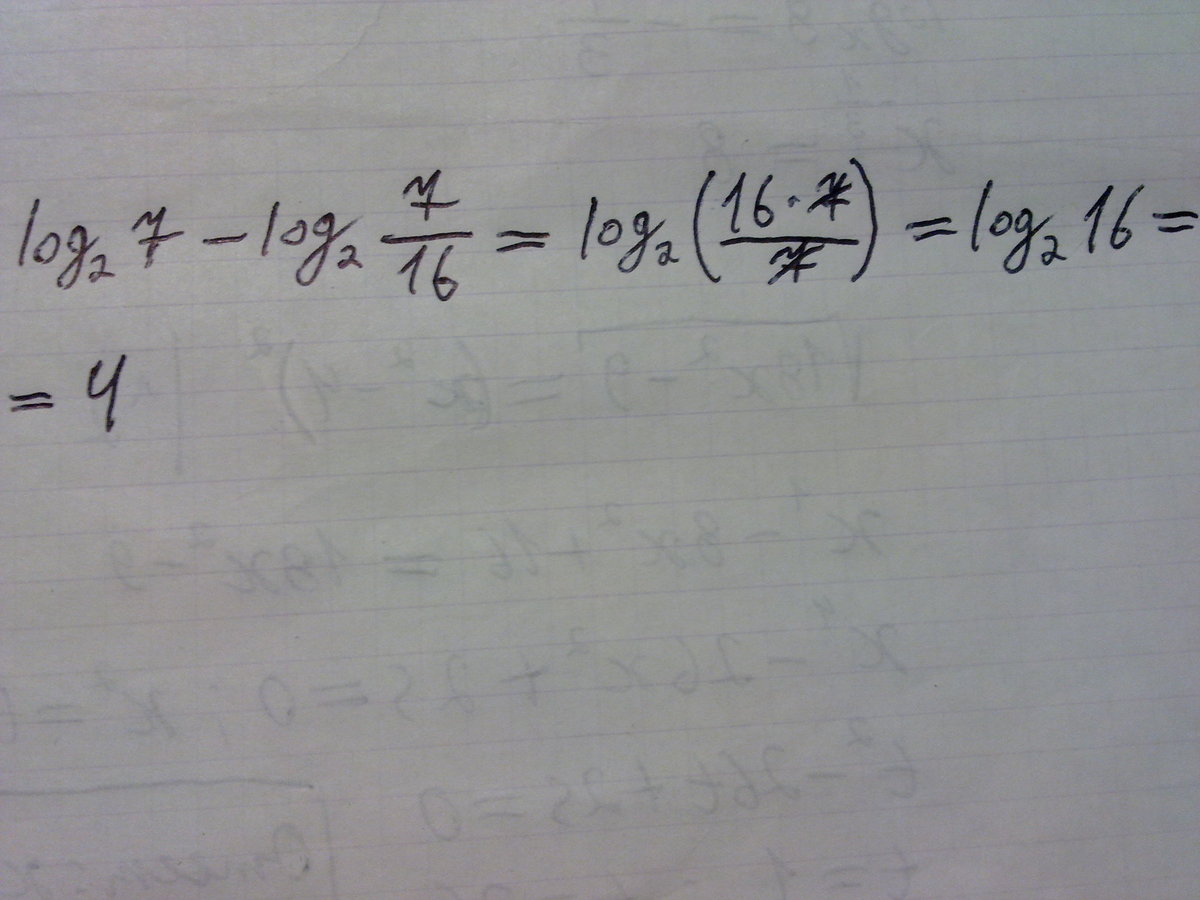 log₂ 7 − log₂ 7/16 = log₂ (16·7/7) = log₂ 16 =
= 4